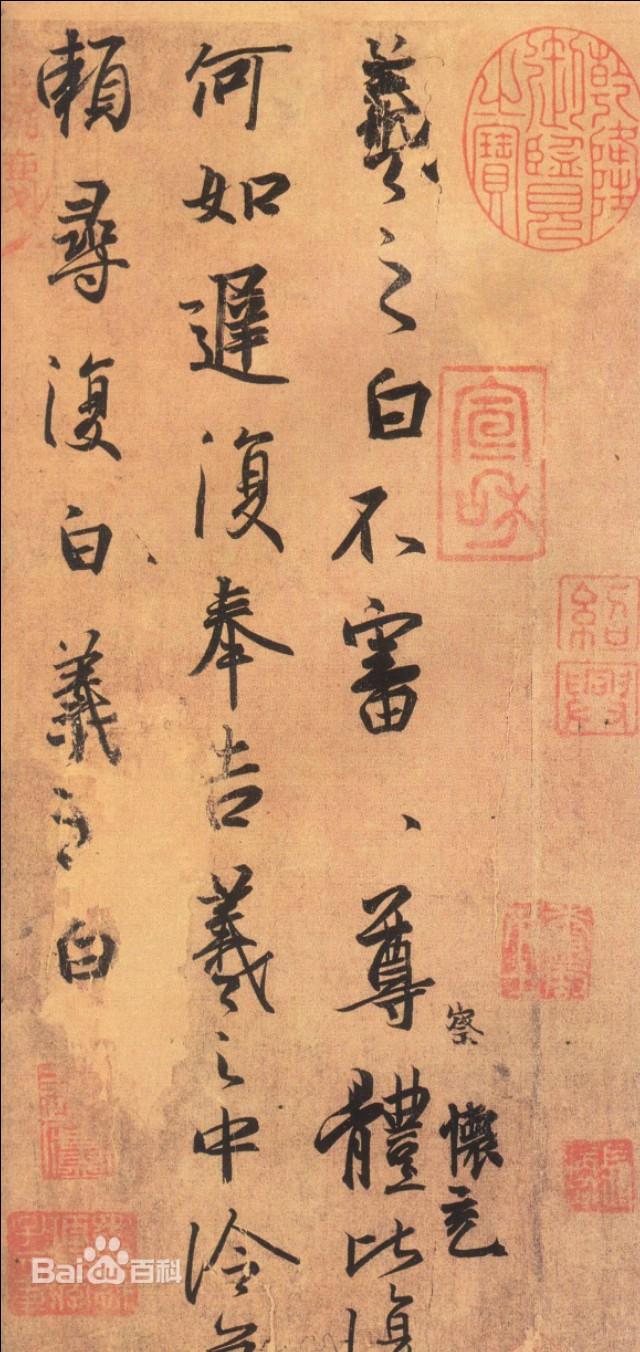 乾隆御覽之寶
宣和
紹興
察
懷充
羲之白不審、尊體比復
何如遲復奉告羲之中冷
賴尋復白羲之白
Bai百科